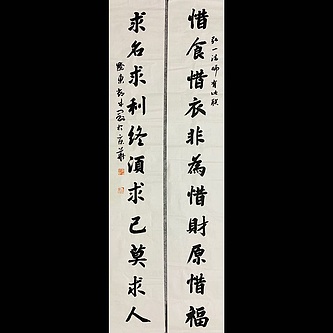 惜食惜衣非為惜財原惜福
弘一法師有此聯
求名求利終須求己莫求人